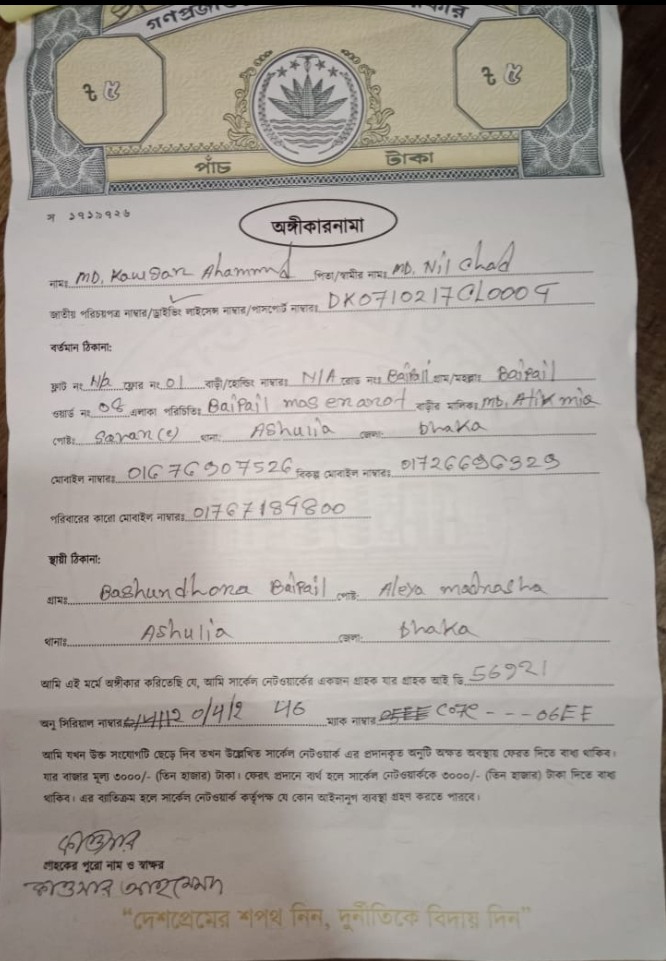 গণপ্রজা
৳ ৫ ৳ ৫
পাঁচ টাকা
স ১৭১৯৭২৬
অঙ্গীকারনামা
নামঃ MD. Kawsar Ahammed পিতা/স্বামীর নামঃ MD. Nil Chad
জাতীয় পরিচয়পত্র নাম্বার/ড্রাইভিং লাইসেন্স নাম্বার/পাসপোর্ট নাম্বারঃ DK0710217CL0009
বর্তমান ঠিকানা:
ফ্লাট নং N/A ফ্লোর নং 01 বাড়ী/হোল্ডিং নাম্বারঃ N/A রোড নংঃ Baipail গ্রাম/মহল্লাঃ Baipail
ওয়ার্ড নং 08 এলাকা পরিচিতিঃ Baipail বাড়ীর মালিকঃ MD. Atik mia
পোষ্টঃ Savar (c) থানাঃ Ashulia জেলাঃ Dhaka
মোবাইল নাম্বারঃ 01676907526 বিকল্প মোবাইল নাম্বারঃ 01726696329
পরিবারের কারো মোবাইল নাম্বারঃ 01767184800
স্থায়ী ঠিকানা:
গ্রামঃ Bashundhora Baipail পোষ্ট: Aleya madrasha
থানাঃ Ashulia জেলা: Dhaka
আমি এই মর্মে অঙ্গীকার করিতেছি যে, আমি সার্কেল নেটওয়ার্কের একজন গ্রাহক যার গ্রাহক আই ডি 56921
অনু সিরিয়াল নাম্বার 0/4/2 46 ম্যাক নাম্বার C07C - - - 06EF
আমি যখন উক্ত সংযোগটি ছেড়ে দিব তখন উল্লেখিত সার্কেল নেটওয়ার্ক এর প্রদানকৃত অনুটি অক্ষত অবস্থায় ফেরত দিতে বাধ্য থাকিব।
যার বাজার মূল্য ৩০০০/- (তিন হাজার) টাকা। ফেরৎ প্রদানে ব্যর্থ হলে সার্কেল নেটওয়ার্ককে ৩০০০/- (তিন হাজার) টাকা দিতে বাধ্য
থাকিব। এর ব্যতিক্রম হলে সার্কেল নেটওয়ার্ক কর্তৃপক্ষ যে কোন আইনানুগ ব্যবস্থা গ্রহণ করতে পারবে।
কাওসার
গ্রাহকের পুরো নাম ও স্বাক্ষর
কাওসার আহমেদ
“দেশপ্রেমের শপথ নিন, দুর্নীতিকে বিদায় দিন”